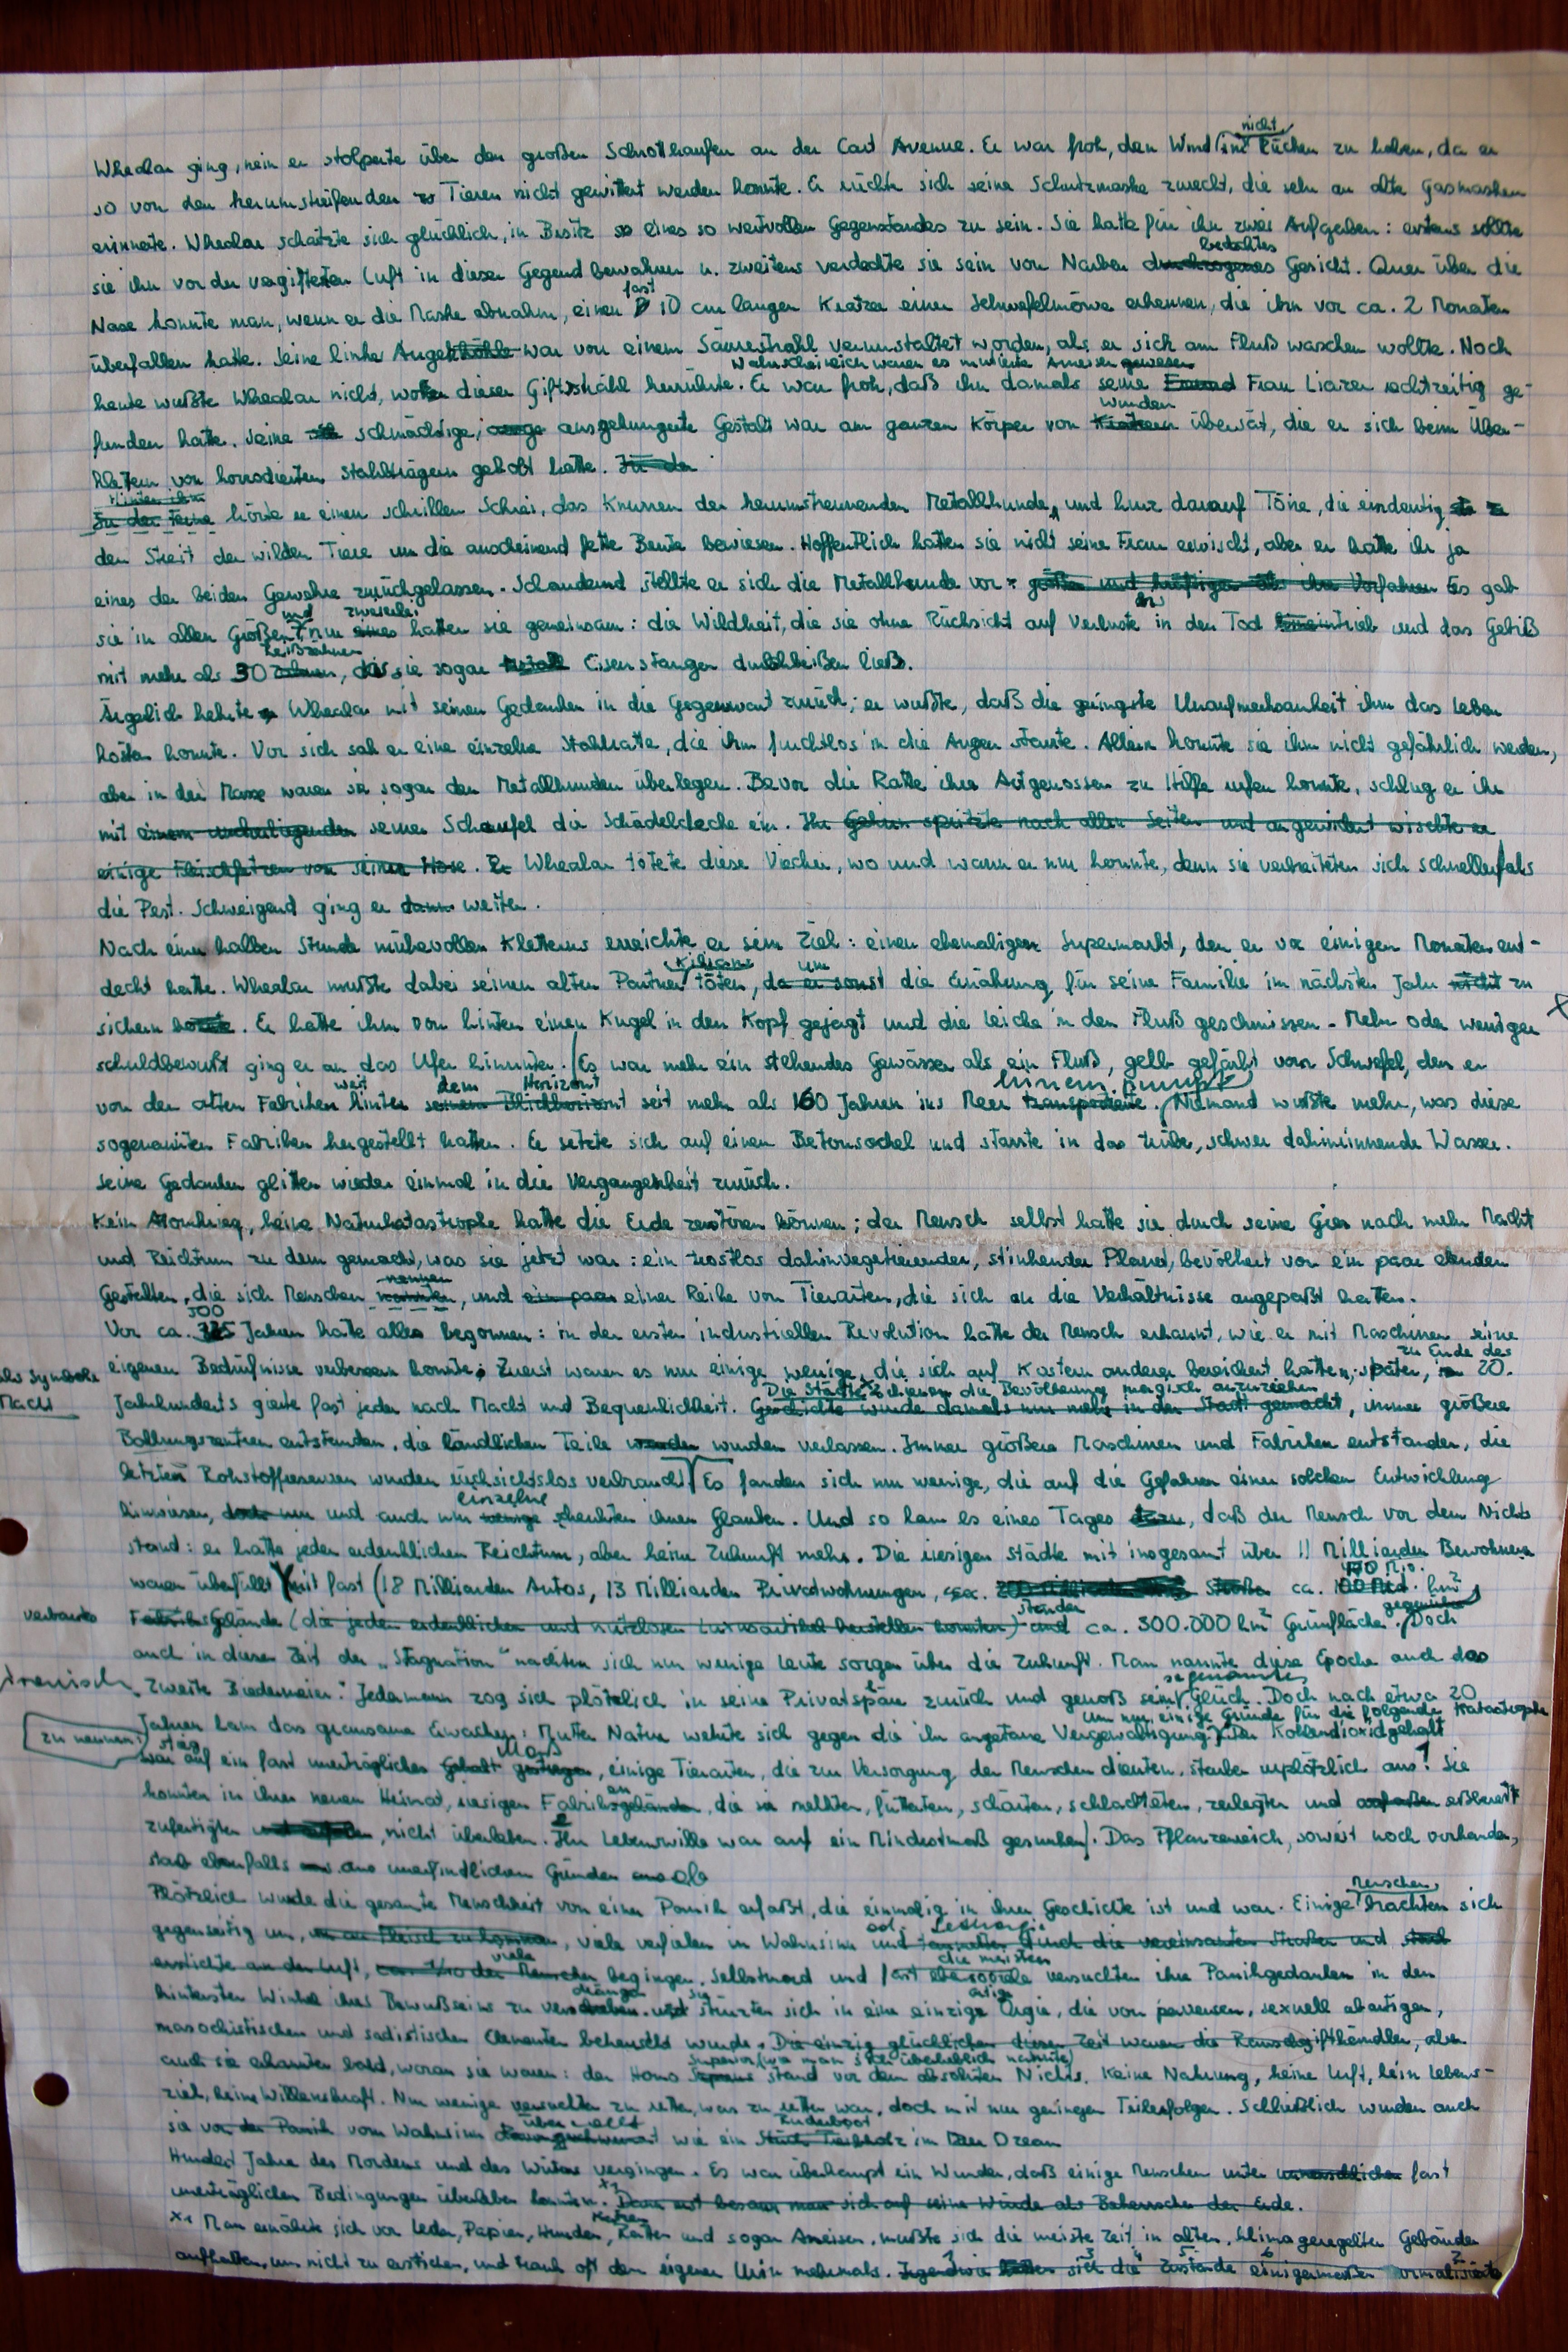 Whealar ging, nein er stolperte über den großen Schrotthaufen an der Cart Avenue. Er war froh, den Wind nicht im Rücken zu haben, da er
so von den herumstreifenden Tieren nicht gewittert werden konnte. Er rückte sich seine Schutzmaske zurecht, die sehr an alte Gasmasken
erinnerte. Whealar schätzte sich glücklich, in Besitz eines so wertvollen Gegenstandes zu sein. Sie hatte für ihn zwei Aufgaben: erstens sollte
sie ihn vor der vergifteten Luft in dieser Gegend bewahren u. zweitens verdeckte sie sein von Narben bedecktes Gesicht. Quer über die
Nase konnte man, wenn er die Maske abnahm, einen fast 10 cm langen Kratzer einer Schwefelmöwe erkennen, die ihn vor ca. 2 Monaten
überfallen hatte. Seine linke Augenhöhle war von einem Säurestrahl verunstaltet worden, als er sich am Fluß waschen wollte. Noch
Wahrscheinlich waren es mutierte Ameisen gewesen
heute wußte Whealar nicht, woher dieser Giftstrahl herrührte. Er war froh, daß ihn damals seine Frau rechtzeitig ge-
funden hatte. Seine schmächtige, ausgehungerte Gestalt war am ganzen Körper von Wunden übersät, die er sich beim Über-
klettern von korrodierten Stahlträgern geholt hatte.
Hinter ihm hörte er einen schrillen Schrei, das Knurren der herumstreunenden Metallhunde, und kurz darauf Töne, die eindeutig
den Streit der wilden Tiere um die anscheinend fette Beute bewiesen. Hoffentlich hatten sie nicht seine Frau erwischt, aber er hatte ihr ja
eines der beiden Gewehre zurückgelassen. Schaudernd stellte er sich die Metallhunde vor: größer und kräftiger als ihre Vorfahren Es gab
sie in allen Größen und nur zweierlei hatten sie gemeinsam: die Wildheit, die sie ohne Rücksicht auf Verluste bis in den Tod trieb und das Gebiß
mit mehr als 30 Reißzähnen, das sie sogar Eisenstangen durchbeißen ließ.
Ärgerlich kehrte Whealar mit seinen Gedanken in die Gegenwart zurück; er wußte, daß die geringste Unaufmerksamkeit ihm das Leben
kosten konnte. Vor sich sah er eine einzelne Stahlratte, die ihm furchtlos in die Augen starrte. Allein konnte sie ihm nicht gefährlich werden,
aber in der Masse waren sie sogar den Metallhunden überlegen. Bevor die Ratte ihre Artgenossen zu Hilfe rufen konnte, schlug er ihr
mit einem umherliegenden seiner Schaufel die Schädeldecke ein. Ihr Gehirn spritzte nach allen Seiten und angewidert wischte er
einige Fleischfetzen von seiner Hose. Er Whealar tötete diese Viecher, wo und wann er nur konnte, denn sie verbreiteten sich schneller als
die Pest. Schweigend ging er dann weiter.
Nach einer halben Stunde mühevollen Kletterns erreichte er sein Ziel: einen ehemaligen Supermarkt, den er vor einigen Monaten ent-
deckt hatte. Whealar mußte dabei seinen alten Partner töten, um da er sonst die Ernährung für seine Familie im nächsten Jahr nicht zu
sichern konnte. Er hatte ihm von hinten einen Kugel in den Kopf gejagt und die Leiche in den Fluß geschmissen. Mehr oder weniger
schuldbewußt ging er an das Ufer hinunter. Es war mehr ein stehendes Gewässer als ein Fluß, gelb gefärbt vom Schwefel, den er
von den alten Fabriken weit hinter dem Horizont seit mehr als 160 Jahren ins Meer hineinpumpte. Niemand wußte mehr, was diese
sogenannten Fabriken hergestellt hatten. Er setzte sich auf einen Betonsockel und starrte in das trübe, schwer dahinrinnende Wasser.
Seine Gedanken glitten wieder einmal in die Vergangenheit zurück.
Kein Atomkrieg, keine Naturkatastrophe hatte die Erde zerstören können; der Mensch selbst hatte sie durch seine Gier nach mehr Macht
und Reichtum zu dem gemacht, was sie jetzt war: ein trostlos dahinvegetierender, stinkender Planet, bevölkert von ein paar elenden
Gestalten, die sich Menschen nennen, und ein paar einer Reihe von Tierarten, die sich an die Verhältnisse angepaßt hatten.
Vor ca. 300 Jahren hatte alles begonnen: in der ersten industriellen Revolution hatte der Mensch erkannt, wie er mit Maschinen seine
eigenen Bedürfnisse verbessern konnte. Zuerst waren es nur einige wenige, die sich auf Kosten anderer bereichert hatten; später, zu Ende des 20.
als Symbole
Macht
Jahrhunderts gierte fast jeder nach Macht und Bequemlichkeit. Die Städte schienen die Bevölkerung magisch anzuziehen Geschichte wurde damals nur mehr in der Stadt gemacht, immer größere
Ballungszentren entstanden, die ländlichen Teile wurden verlassen. Immer größere Maschinen und Fabriken entstanden, die
letzten Rohstoffreserven wurden rücksichtslos verbraucht. Es fanden sich nur wenige, die auf die Gefahren einer solchen Entwicklung
hinwiesen, und auch nur einzelne schenkten ihnen Glauben. Und so kam es eines Tages, daß der Mensch vor dem Nichts
stand: er hatte jeden erdenklichen Reichtum, aber keine Zukunft mehr. Die riesigen Städte mit insgesamt über 11 Milliarden Bewohnern
waren überfüllt mit fast (18 Milliarden Autos, 13 Milliarden Privatwohnungen, ca. km²
verbautes Gelände (die jeden erdenklichen und nutzlosen Luxusartikel herstellen konnten) standen ca. 300.000 km² Grünfläche gegenüber. Doch
auch in dieser Zeit der „Stagnation" machten sich nur wenige Leute Sorgen über die Zukunft. Man nannte diese Epoche auch das
ironisch
zweite Biedermeier: Jedermann zog sich plötzlich in seine Privatsphäre zurück und genoß sein sogenanntes Glück. Doch nach etwa 20
Jahren kam das grausame Erwachen: Mutter Natur wehrte sich gegen die ihr angetane Vergewaltigung. Um nur einige Gründe für die folgende Katastrophe
zu nennen: Der Kohlendioxidgehalt
stieg auf ein fast unerträgliches Maß, einige Tierarten, die zur Versorgung der Menschen dienten, starben urplötzlich aus. Sie
konnten in ihrer neuen Heimat, riesigen Fabriken, die sie melkten, fütterten, schoren, schlachteten, zerlegten und eßbereit
zufertigten, nicht überleben. Ihr Lebenswille war auf ein Mindestmaß gesunken. Das Pflanzenreich, soweit noch vorhanden,
starb ebenfalls aus unerfindlichen Gründen ab
Plötzlich wurde die gesamte Menschheit von einer Panik erfaßt, die einmalig in ihrer Geschichte ist und war. Einige Menschen brachten sich
gegenseitig um, viele verfielen in Wahnsinn od. Lethargie und durch die vereinsamten Straßen und
erstickte an der Luft, viele begingen Selbstmord und die meisten versuchten ihre Panikgedanken in den
hintersten Winkel ihres Bewußseins zu verdrängen. sie stürzten sich in eine einzige Orgie, die von perversen, sexuell abartigen,
masochistischen und sadistischen Elementen beherrscht wurde. Die einzig glücklichen dieser Zeit waren die Rauschgifthändler, aber
auch sie erkannten bald, woran sie waren: der Homo Superior (wie man sich überheblich nannte) stand vor dem absoluten Nichts. Keine Nahrung, keine Luft, kein Lebens-
ziel, keine Willenskraft. Nur wenige versuchten zu retten, was zu retten war, doch mit nur geringen Teilerfolgen. Schließlich wurden auch
sie von der Panik vom Wahnsinn überrollt wie ein Ruderboot im Ozean
Hundert Jahre des Mordens und des Wütens vergingen. Es war überhaupt ein Wunder, daß einige Menschen unter fast
unerträglichen Bedingungen überleben konnten. x₁ Dann erst besann man sich auf seine Würde als Beherrscher der Erde.
x₁ Man ernährte sich von Leder, Papier, Hunden, Katzen, Ratten und sogar Ameisen, mußte sich die meiste Zeit in alten, klimageregelten Gebäuden
aufhalten, um nicht zu ersticken, und trank oft den eigenen Urin mehrmals. Irgendwie sich die Zustände einigermaßen